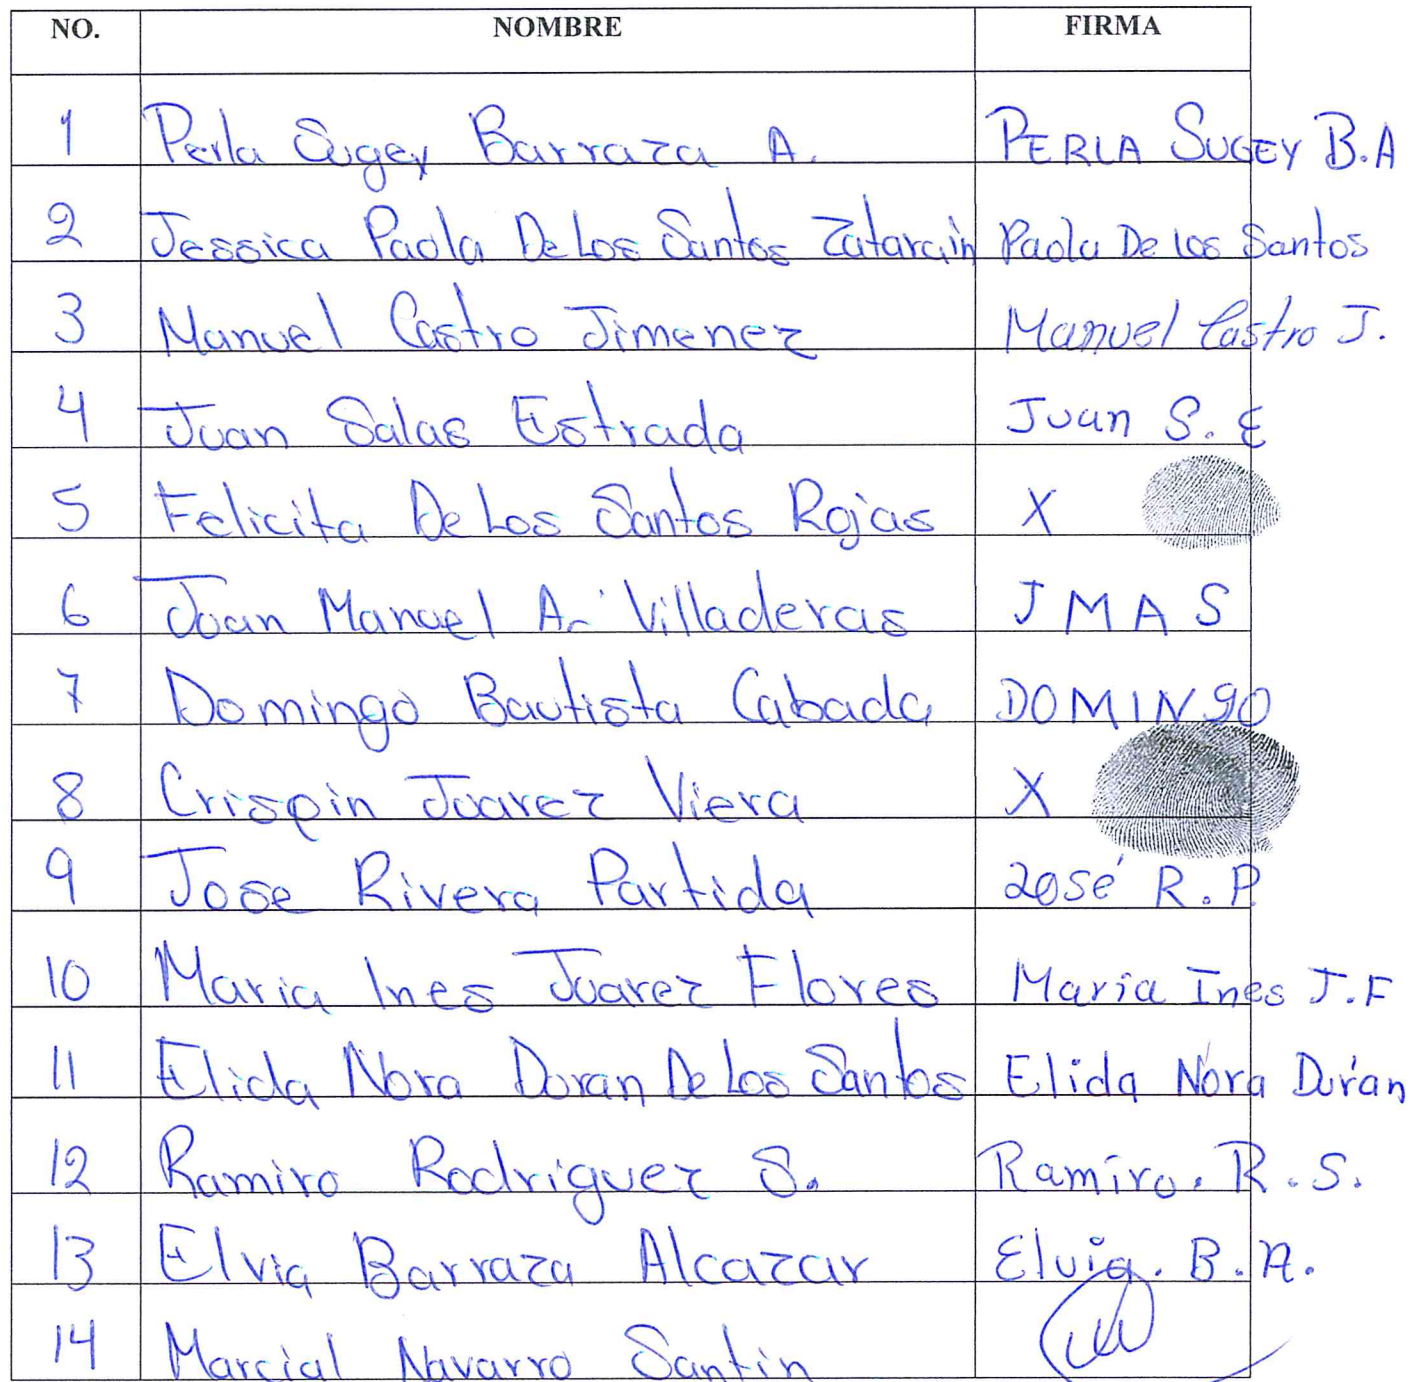 NO. NOMBRE FIRMA
1 Perla Sugey Barraza A. PERLA SUGEY B.A
2 Jessica Paola De Los Santos Zatarain Paola De los Santos
3 Manuel Castro Jimenez Manuel Castro J.
4 Juan Salas Estrada Juan S. E
5 Felicita De Los Santos Rojas X
6 Juan Manuel A. Villaderas J M A S
7 Domingo Bautista Cabada DOMINGO
8 Crispin Juarez Viera X
9 Jose Rivera Partida José R.P.
10 Maria Ines Juarez Flores Maria Ines J.F
11 Elida Nora Duran De Los Santos Elida Nora Durán
12 Ramiro Rodriguez S. Ramiro. R.S.
13 Elvia Barraza Alcazar Elvia. B.A.
14 Marcial Navarro Santin